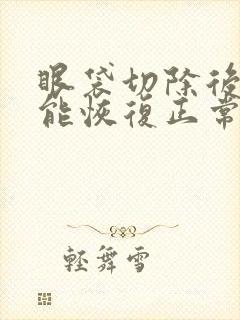 眼袋切除後
能恢復正常
輕舞雪